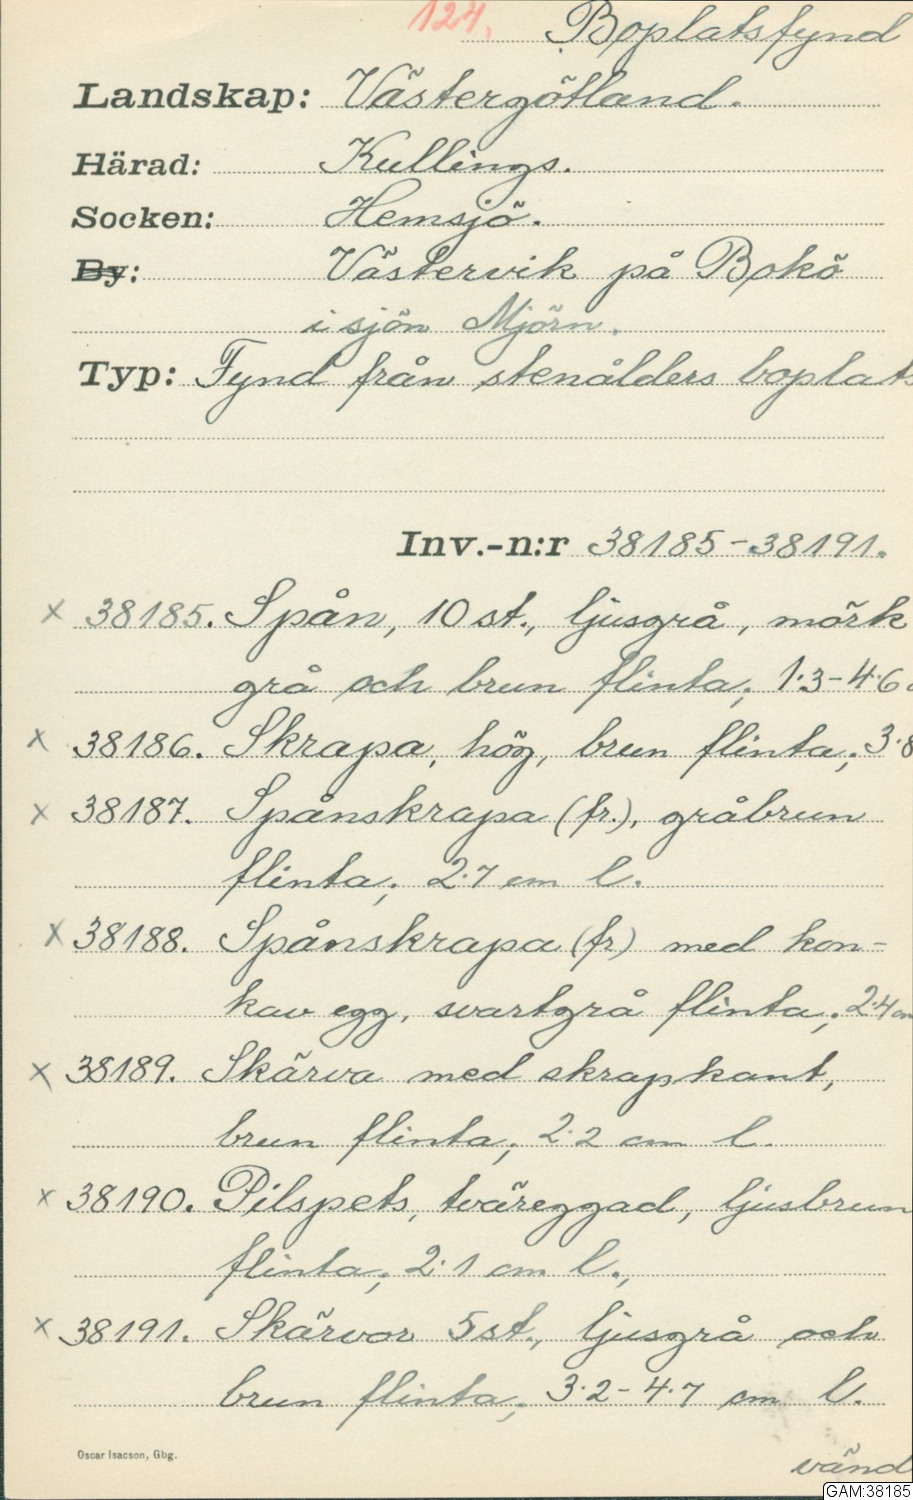 124. Boplatsfynd
Landskap: Västergötland.
Härad: Kullings.
Socken: Hemsjö.
By: Västervik på Bokö
i sjön Mjörn.
Typ: Fynd från stenålders boplats
Inv.-n:r 38185-38191.
x 38185. Spån, 10 st., ljusgrå, mörk
grå och brun flinta; 1.3-4.6 c
x 38186. Skrapa, hög, brun flinta; 3.8
x 38187. Spånskrapa (fr.), gråbrun
flinta; 2.7 cm l.
x 38188. Spånskrapa (fr) med kon-
kav egg, svartgrå flinta; 2.4 cm
x 38189. Skärva med skrapkant,
brun flinta; 2.2 cm l.
x 38190. Pilspets, tväreggad, ljusbrun
flinta; 2.1 cm l.,
x 38191. Skärvor 5 st., ljusgrå och
brun flinta; 3.2-4.7 cm l.
Oscar Isacson, Gbg.
vänd
GAM:38185